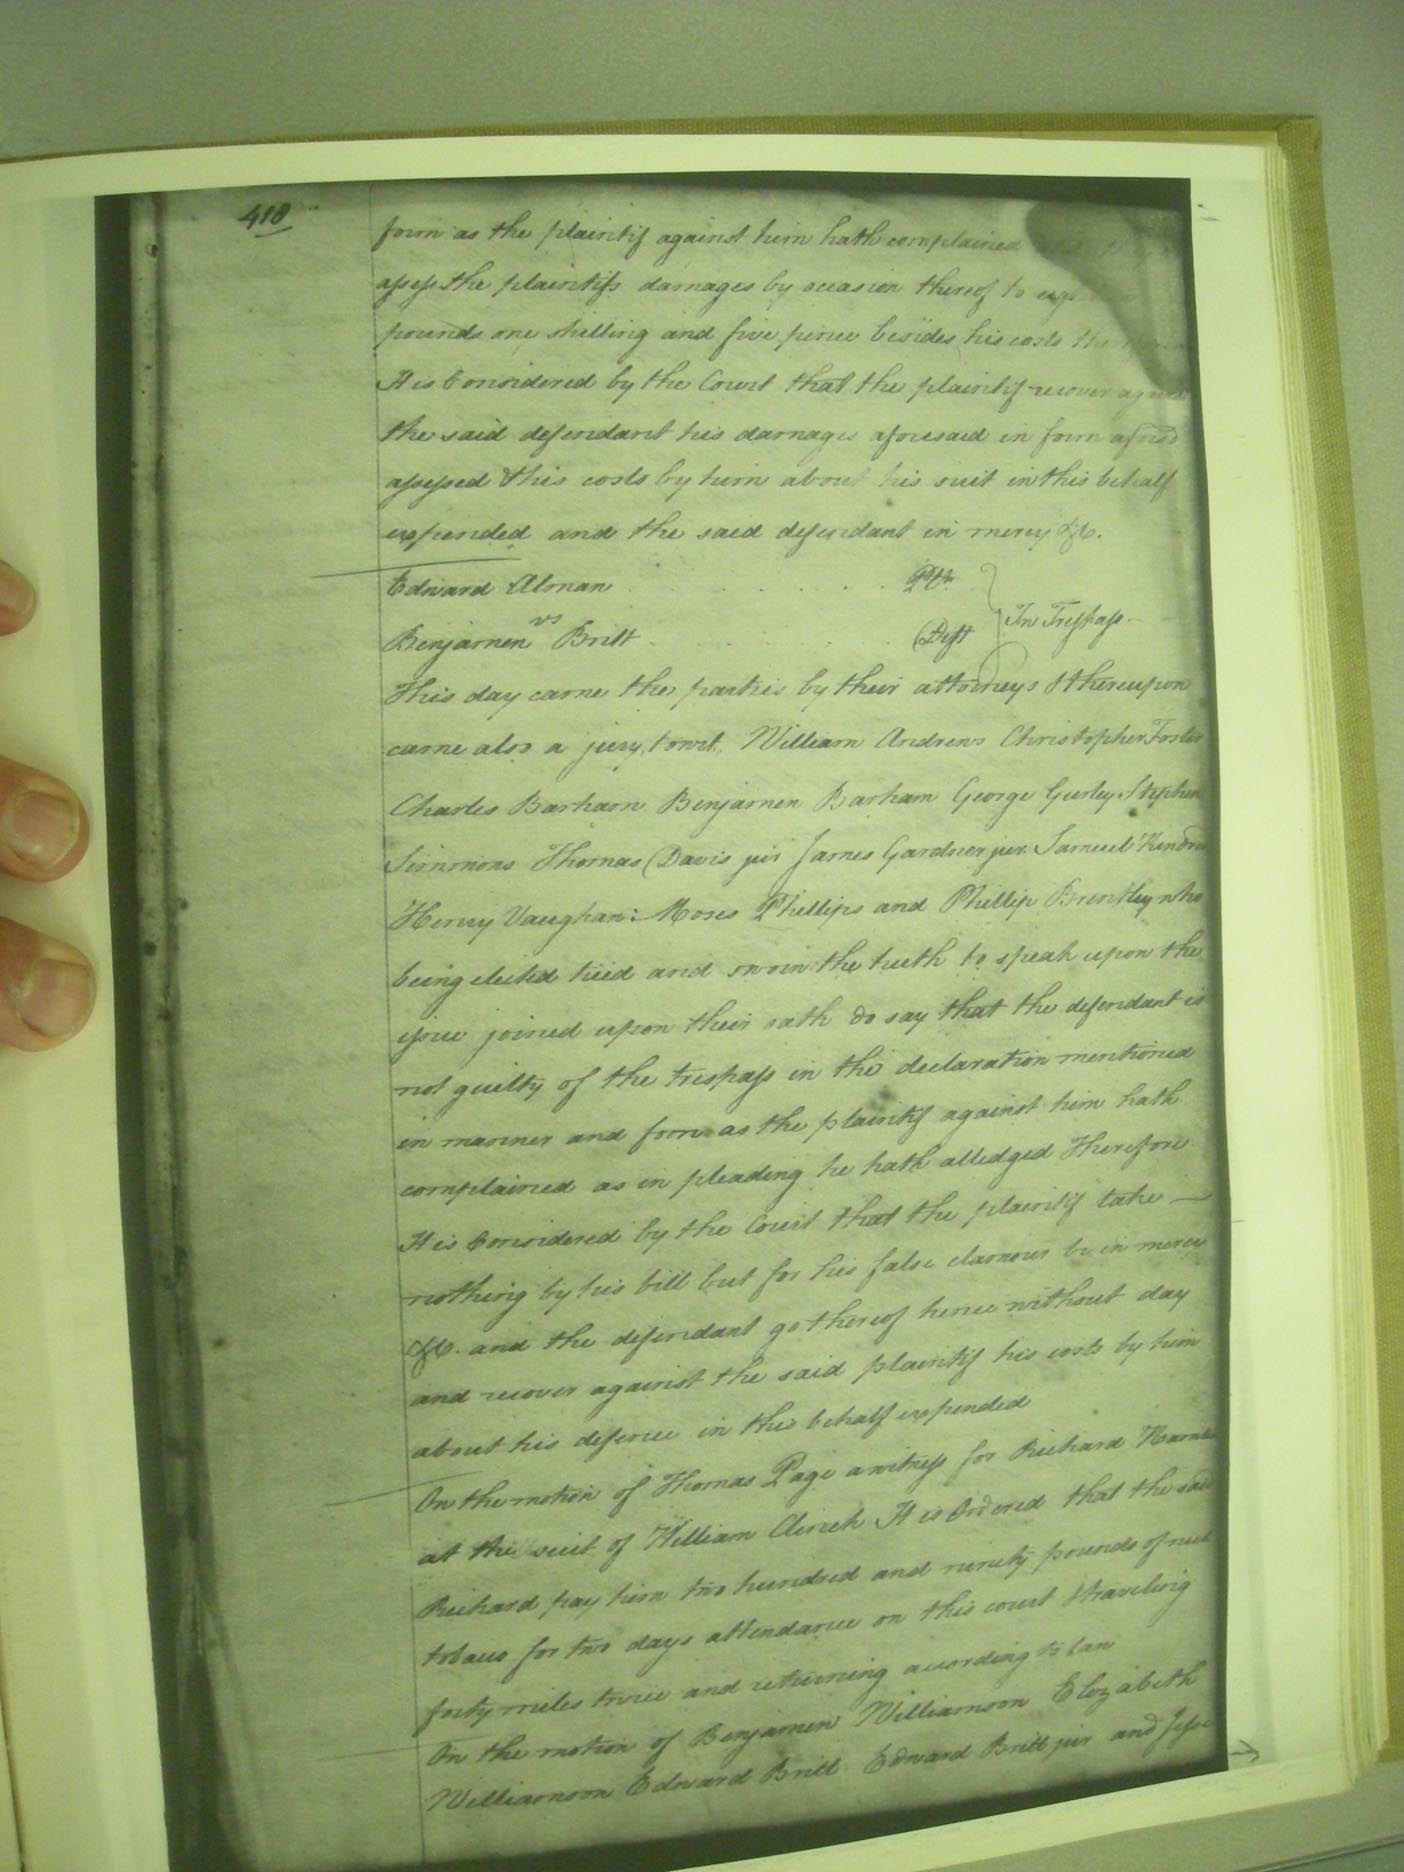 418
form as the plaintif against him hath complained
assess the plaintifs damages by occasion thereof to
pounds one shilling and five pence besides his costs
It is Considered by the Court that the plaintif recover against
the said defendant his damages aforesaid in form aforesd
assessed & his costs by him about his suit in this behalf
expended and the said defendant in mercy &c.
Edward Alman Plt
vs
In Trespass
Benjamen Britt Deft
This day came the parties by their attorneys & thereupon
came also a jury, towit, William Andrews Christopher Foster
Charles Barham Benjamen Barham George Gurley Stephen
Simmons Thomas Davis jur James Gardner jur. Samuel
Henry Vaughan: Moses Phillips and Phillip Brentley who
being elected tried and sworn the truth to speak upon the
issue joined upon their oath do say that the defendant is
not guilty of the trespass in the declaration mentioned
in manner and form as the plaintif against him hath
complained as in pleading he hath alledged Therefore
It is Considered by the Court that the plaintif take
nothing by his bill but for his false clamour be in mercy
&c. and the defendant go thereof hence without day
and recover against the said plaintif his costs by him
about his defence in this behalf expended
On the motion of Thomas Page a witness for Richard
at the suit of William Clinch It is Ordered that the said
Richard pay him two hundred and ninety pounds of
tobaco for two days attendance on this court & traveling
forty miles twice and returning according to law
On the motion of Benjamen Williamson Elizabeth
Williamson Edward Britt Edward Britt jur and Jesse